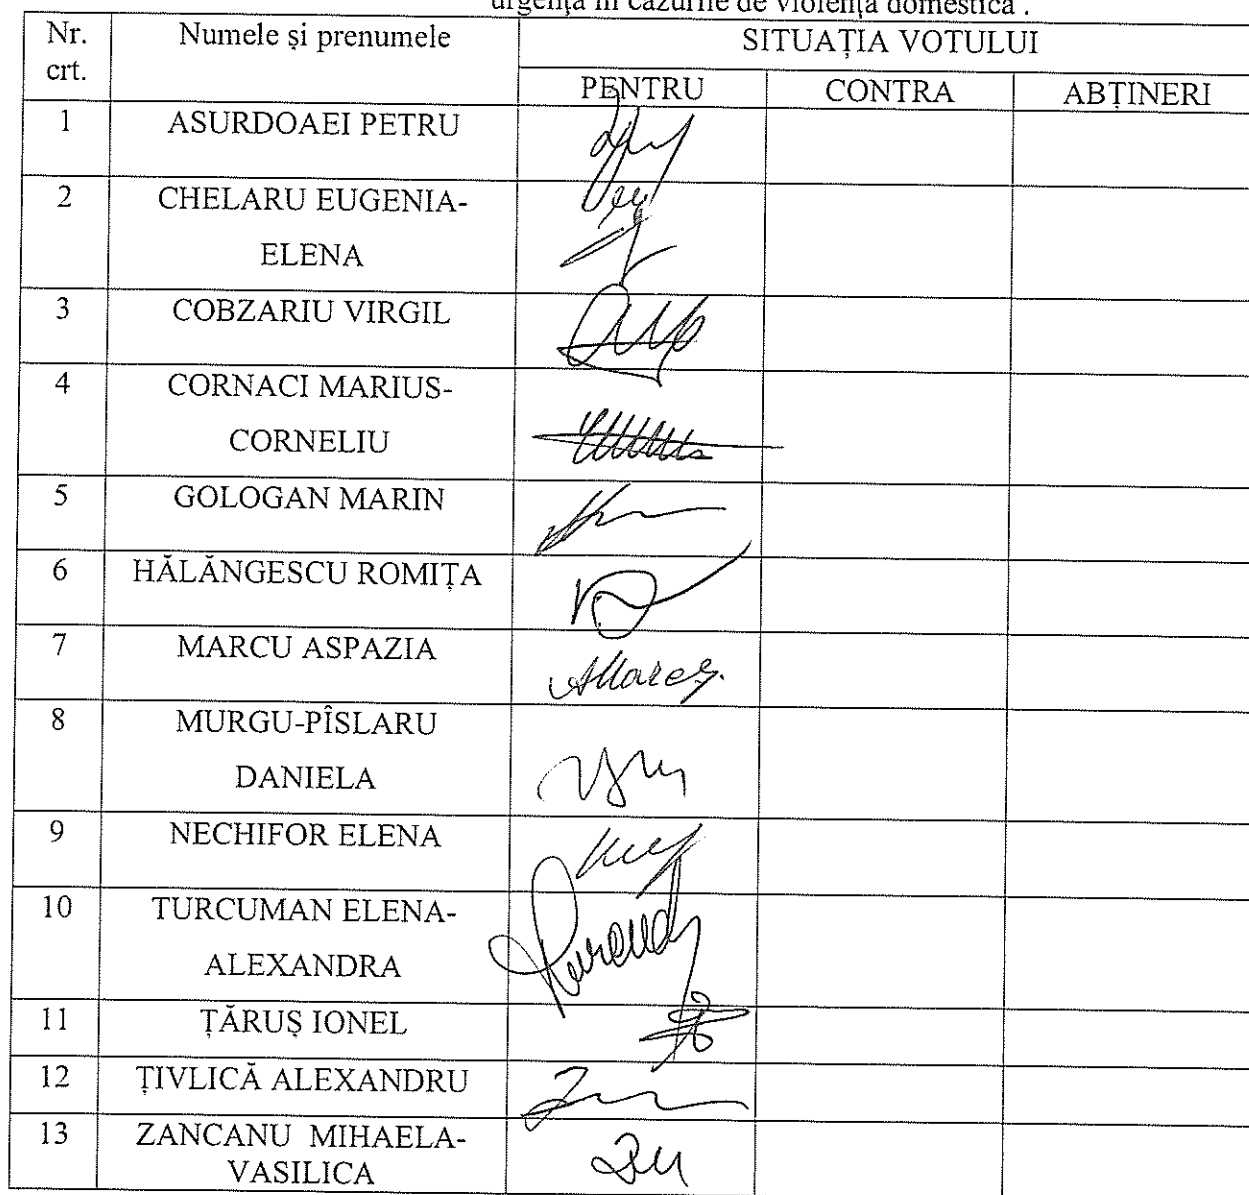 urgență în cazurile de violență domestică .
Nr. crt. Numele și prenumele SITUAȚIA VOTULUI
PENTRU CONTRA ABȚINERI
1 ASURDOAEI PETRU
2 CHELARU EUGENIA-
ELENA
3 COBZARIU VIRGIL
4 CORNACI MARIUS-
CORNELIU
5 GOLOGAN MARIN
6 HĂLĂNGESCU ROMIȚA
7 MARCU ASPAZIA
8 MURGU-PÎSLARU
DANIELA
9 NECHIFOR ELENA
10 TURCUMAN ELENA-
ALEXANDRA
11 ȚĂRUȘ IONEL
12 ȚIVLICĂ ALEXANDRU
13 ZANCANU MIHAELA-
VASILICA